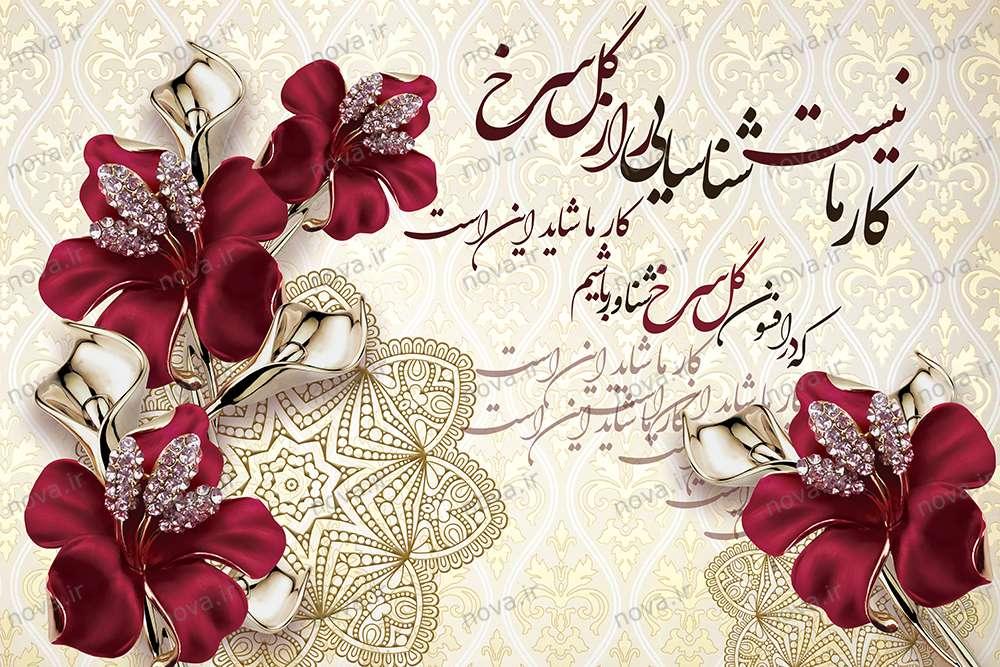 کار ما نیست شناسایی راز گل سرخ
کار ما شاید این است
که در افسون گل سرخ شناور باشیم
کار ما شاید این است
کار ما شاید این است
کار ما شاید این است
nova.ir